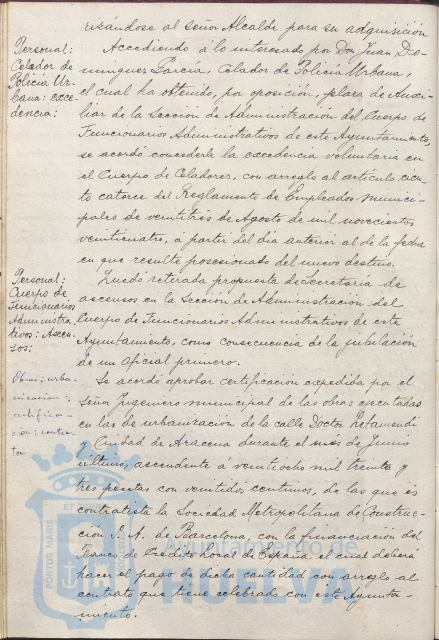 rizándose al Señor Alcalde para su adquisición
Personal:
Celador de
Policía Ur-
bana: exce-
dencia:
Accediendo á lo interesado por Don Juan Do-
minguez García, Celador de Policía Urbana,
el cual ha obtenido, por oposición, plaza de Auxi-
liar de la Sección de Administración del Cuerpo de
Funcionarios Administrativos de este Ayuntamiento,
se acordó concederle la excedencia voluntaria en
el Cuerpo de Celadores, con arreglo al artículo cien-
to catorce del Reglamento de Empleados munici-
pales de veintitrés de Agosto de mil novecientos
veinticuatro, a partir del día anterior al de la fecha
en que resulte posesionado del nuevo destino.
Personal:
Cuerpo de
Funcionarios
Administra-
tivos: Ascen-
sos:
Quedó retirada propuesta de Secretaría de
ascensos en la Sección de Administración del
Cuerpo de Funcionarios Administrativos de este
Ayuntamiento, como consecuencia de la jubilación
de un Oficial primero.
Obras: urba-
nización:
certifica-
ción: contra-
ta
Se acordó aprobar certificación expedida por el
Señor Ingeniero municipal de las obras ejecutadas
en las de urbanización de la calle Doctor Letamendi
y Ciudad de Aracena durante el mes de Junio
último, ascendente á veintiocho mil treinta y
tres pesetas con veintidos centimos, de las que es
contratista la Sociedad Metropolitana de Construc-
ción S. A. de Barcelona, con la financiación del
Banco de Crédito Local de España el cual deberá
hacer el pago de dicha cantidad con arreglo al
contrato que tiene celebrado con este Ayunta-
miento.
PORTUS MARIS ET
Ayuntamiento de
HUELVA